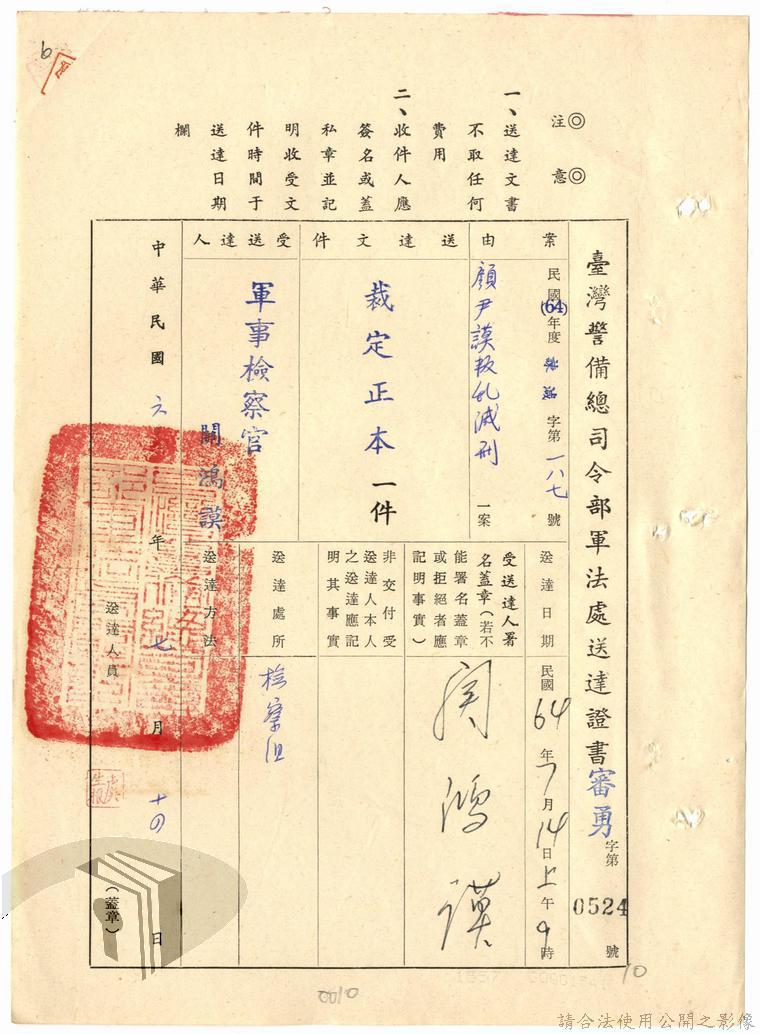 ◎注意◎
一、送達文書
不取任何
費用
二、收件人應
簽名或蓋
私章並記
明收受文
件時間于
送達日期
欄
臺灣警備總司令部軍法處送達證書審勇字第0524號
案由
民國(64)年度 字第一八七號
顏尹謨叛乱減刑一案
送達文件
裁定正本一件
受送達人
軍事檢察官
關鴻謨
送達日期
民國64年7月14日上午9時
受送達人署
名蓋章(若不
能署名蓋章
或拒絕者應
記明事實)
関鴻謨
非交付受
送達人本人
之送達應記
明其事實
送達處所
檢察組
送達方法
中華民國六 年七月十四日
送達人員
(蓋章)
6
10
0010
請合法使用公開之影像